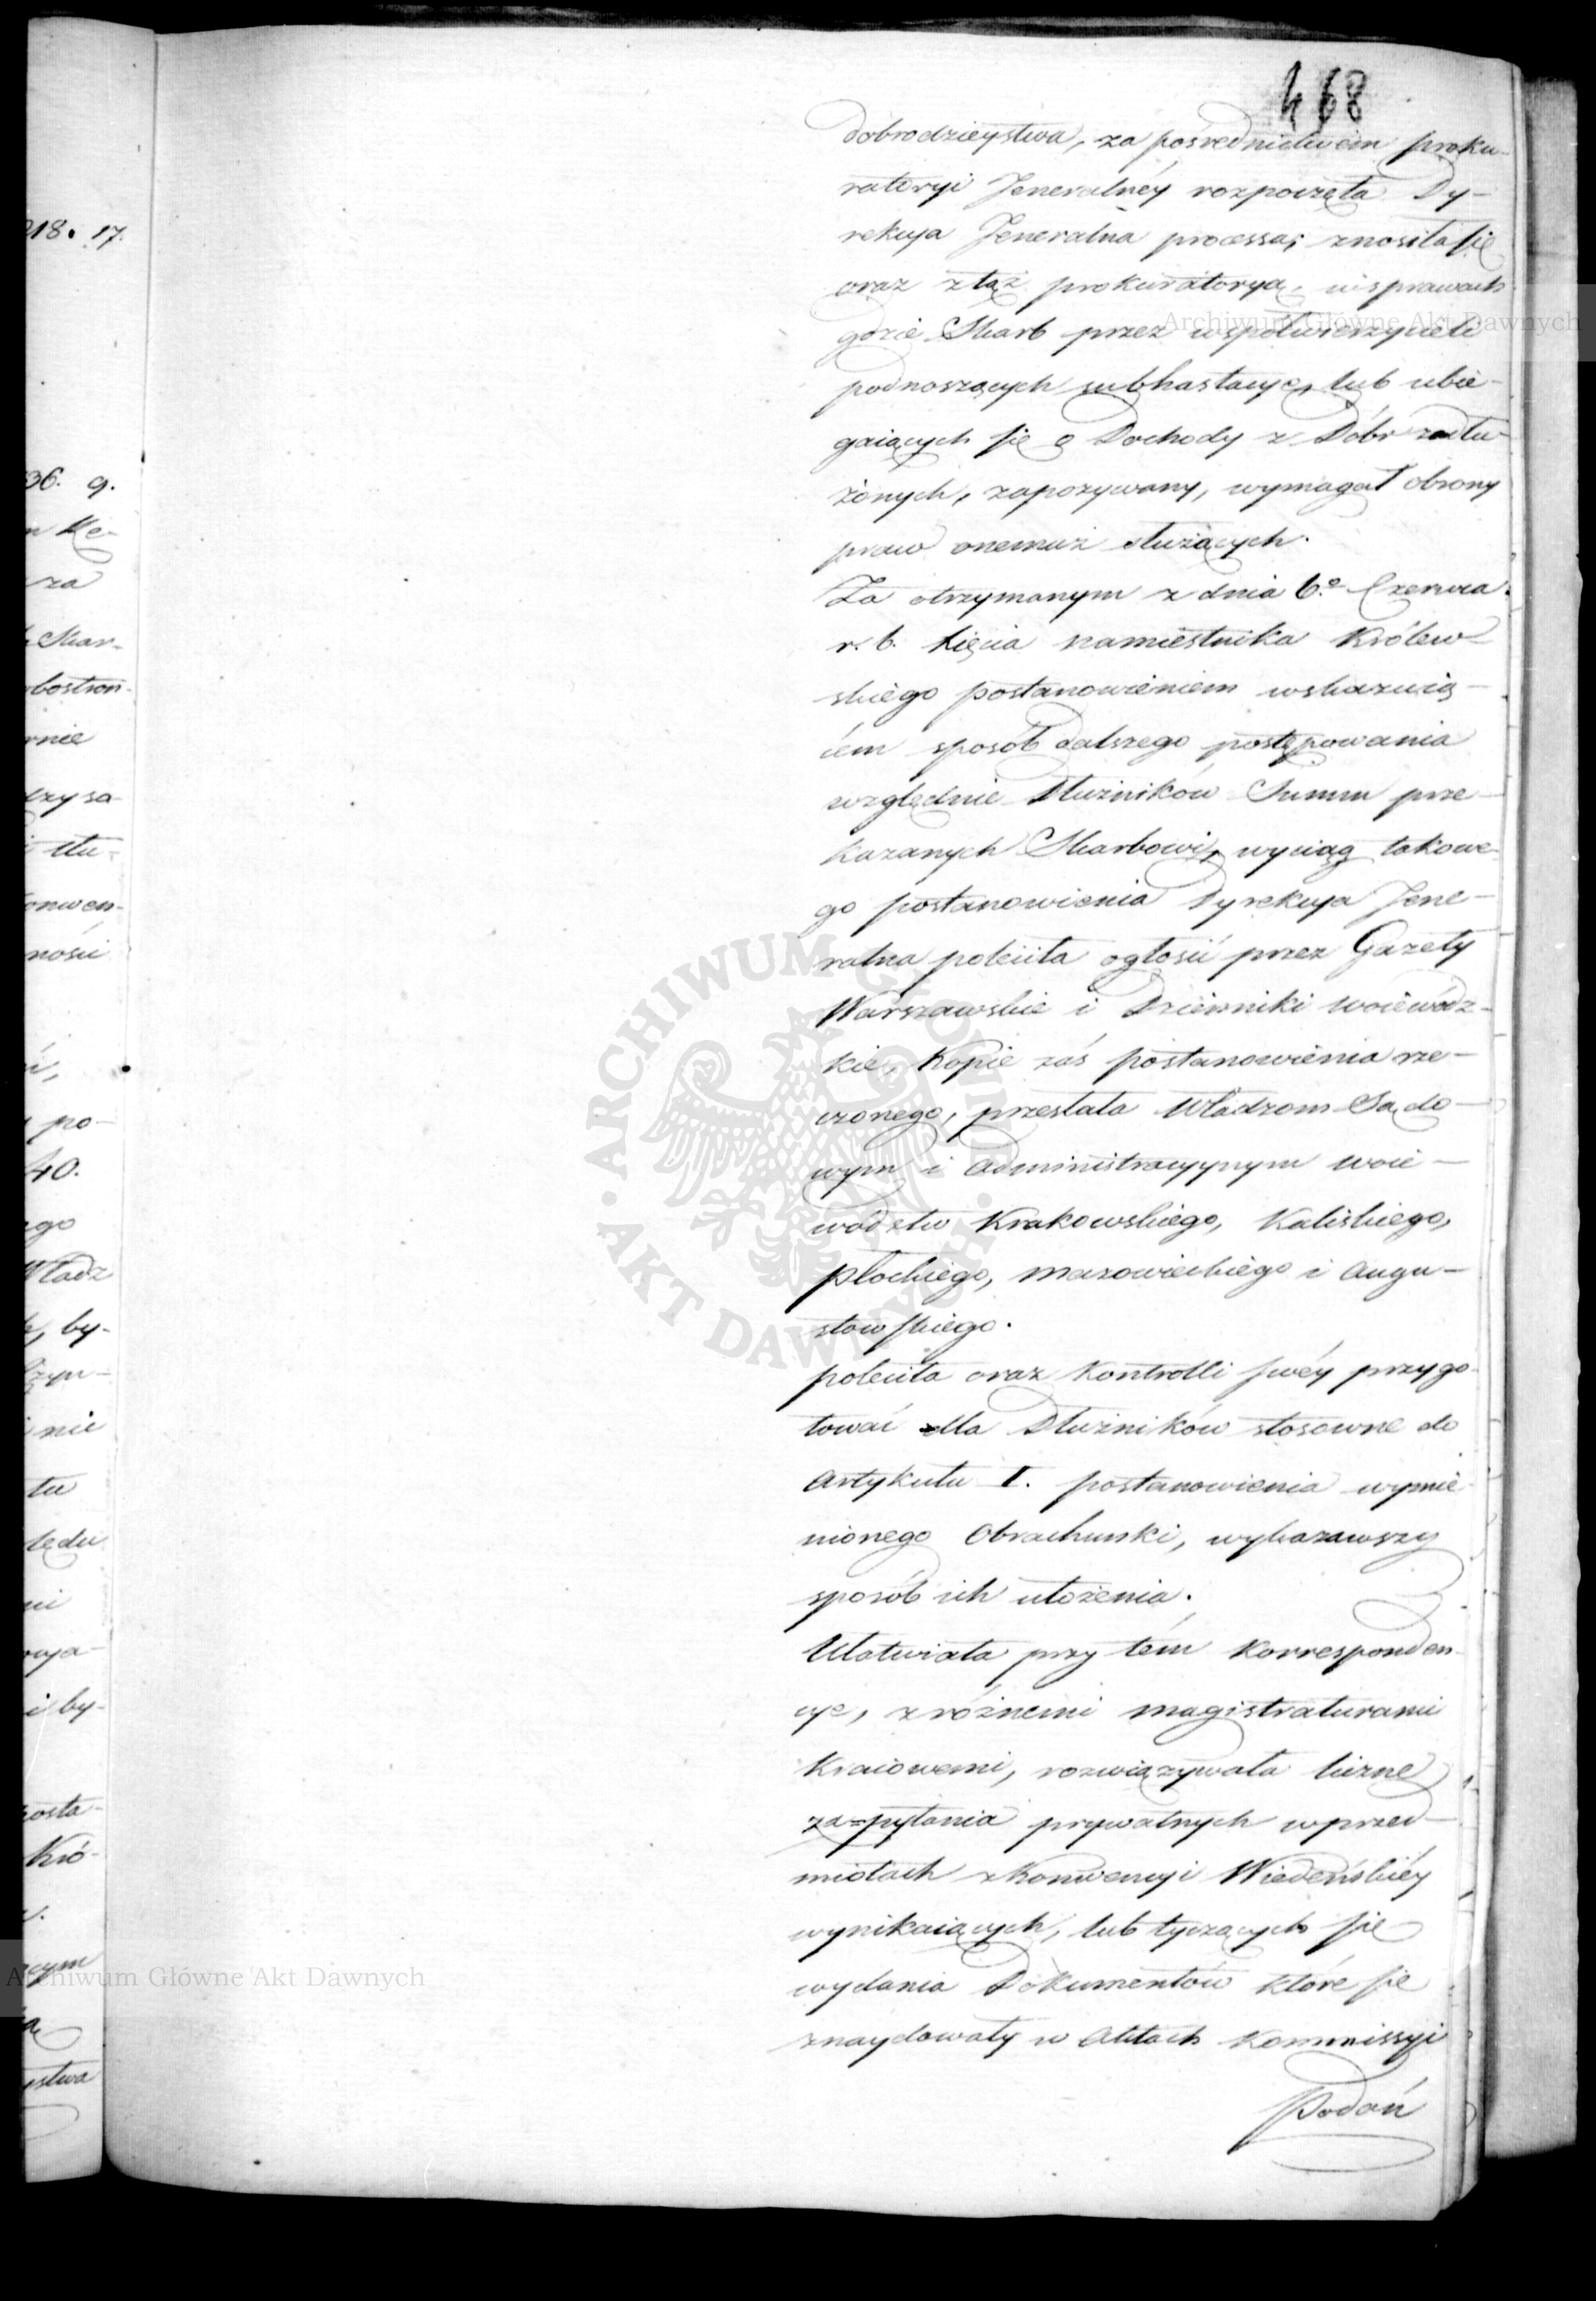 468
dobrodzieystwa, za pośrednictwem proku-
ratoryi Jeneralnéy rozpoczęła Dy-
rekcya Jeneralna processa; znosiła się
oraz z tąż prokuratoryą, w sprawach
gdzie Skarb przez współwierzycieli
podnoszących subhastacye, lub ubie-
gaiących się o Dochody z Dóbr zadłu-
żonych, zapozywany, wymagał obrony
praw onemuż służących.
Za otrzymanym z dnia 6.º Czerwca
r. b. Xięcia Namiestnika Królew-
skiego postanowieniem wskazuią-
cem sposób dalszego postępowania
względnie Dłużników Summ prze-
kazanych Skarbowi, wyciąg takowe-
go postanowienia Dyrekcya Jene-
ralna poleciła ogłosić przez Gazety
Warszawskie i Dzienniki woiewódz-
kie, Kopie zaś postanowienia rze-
czonego, przesłała Władzom Sądo-
wym i administracyynym woie-
wództw Krakowskiego, Kaliskiego,
płockiego, mazowieckiego i augu-
stowskiego.
poleciła oraz Kontrolli swéy przygo-
tować dla Dłużników stosowne do
artykułu I. postanowienia wymie-
nionego Obrachunki, wykazawszy
sposób ich ułożenia.
Ułatwiała przy tém Korresponden-
cye, z różnemi magistraturami
Kraiowemi, rozwiązywała liczne
za=pytania prywatnych w przed-
miotach z Konwencyi Wiedeńskiéy
wynikaiących, lub tyczących się
wydania Dokumentów które się
znaydowały w aktach Kommissyi
Podań
218. 17.
36. 9.
za
rnie
ności
po-
40.
ego
Władz
by-
nie
i by-
Kró-
Archiwum Główne Akt Dawnych
Archiwum Główne Akt Dawnych
ARCHIWUM GŁÓWNE
AKT DAWNYCH